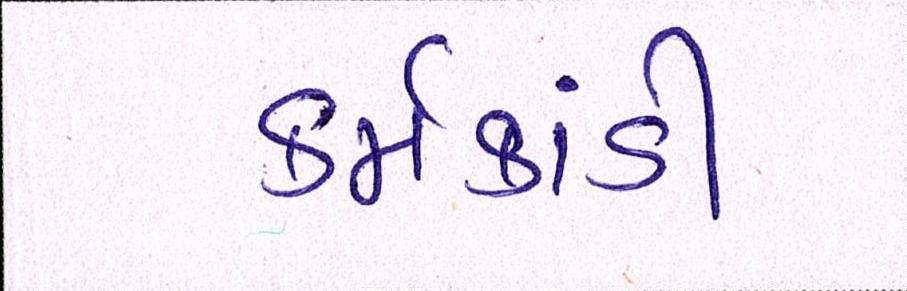 કર્મકાંડી